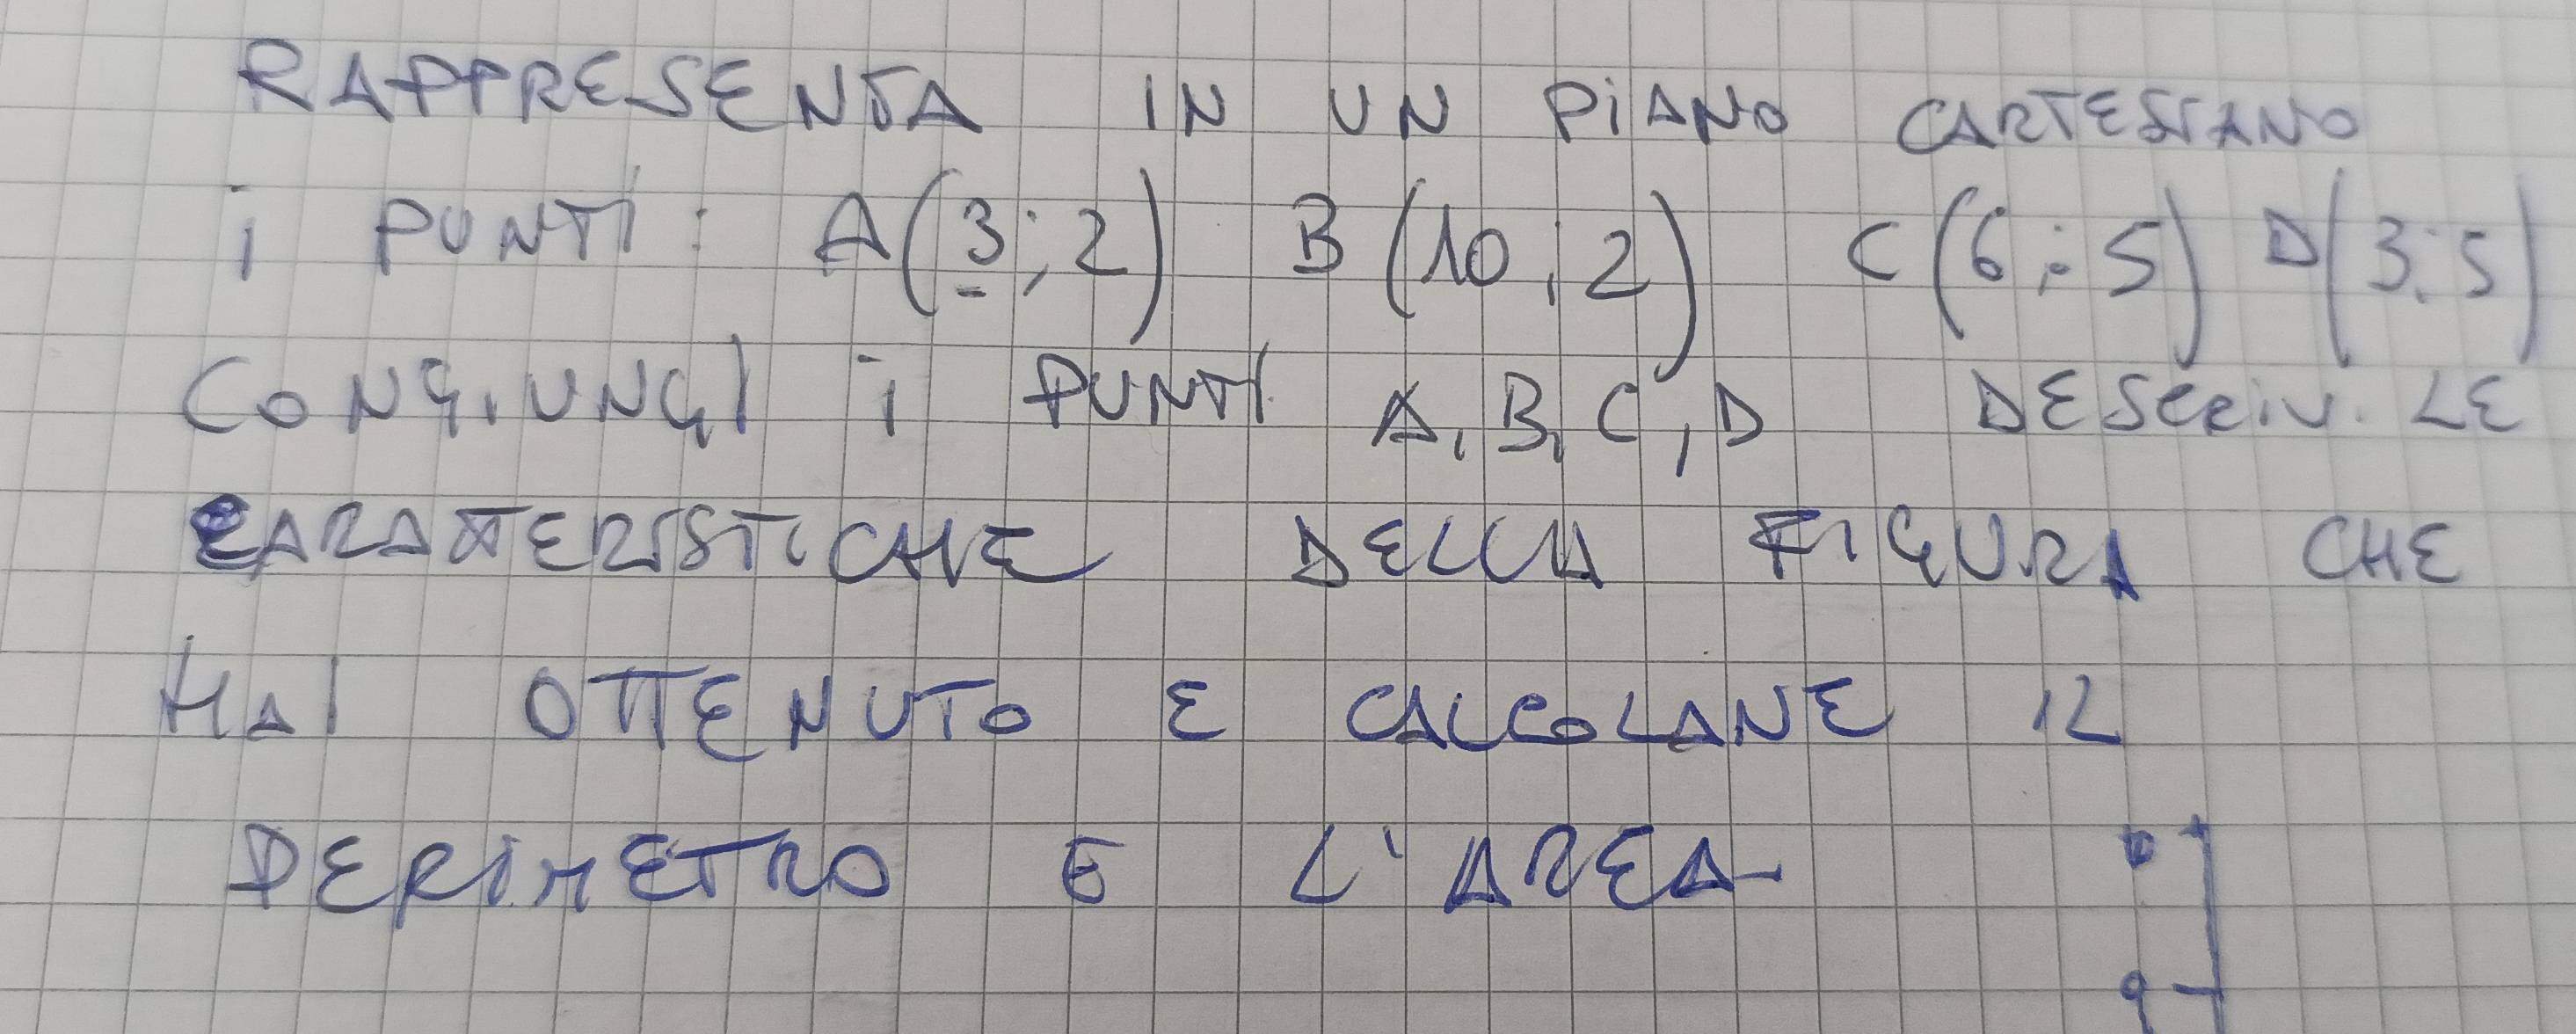 RAPPRESENTA IN UN PIANO CARTESIANO
I PUNTI: A(3;2) B(10;2) C(6;5) D(3;5)
CONGIUNGI I PUNTI A, B, C, D DESCRIV. LE
CARATTERISTICHE DELLA FIGURA CHE
HAI OTTENUTO E CALCOLANE IL
PERIMETRO E L'AREA
9